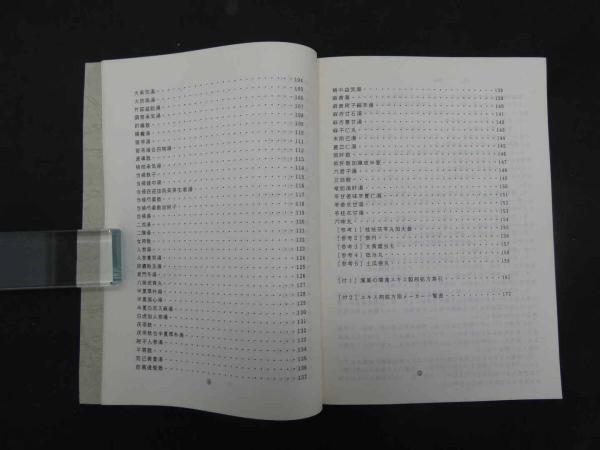 大承気湯 104
大防風湯 105
竹茹温胆湯 106
調胃承気湯 107
釣藤散 108
猪苓湯 110
猪苓湯合四物湯 111
通導散 112
桃核承気湯 113
当帰飲子 114
当帰建中湯 115
当帰四逆加呉茱萸生姜湯 116
当帰芍薬散 117
当帰芍薬散加附子 118
当帰湯 119
二朮湯 120
二陳湯 121
女神散 122
人参湯 123
人参養栄湯 124
排膿散及湯 125
麦門冬湯 126
八味地黄丸 127
半夏厚朴湯 128
半夏瀉心湯 129
半夏白朮天麻湯 130
白虎加人参湯 131
茯苓飲 132
茯苓飲合半夏厚朴湯 133
附子人参湯 134
平胃散 135
防已黄耆湯 136
防風通聖散 137
補中益気湯 138
麻黄湯 139
麻黄附子細辛湯 140
麻杏甘石湯 141
麻杏薏甘湯 142
麻子仁丸 143
木防已湯 144
薏苡仁湯 145
抑肝散 146
抑肝散加陳皮半夏 147
六君子湯 148
立効散 149
竜胆瀉肝湯 150
苓甘姜味辛夏仁湯 151
苓姜朮甘湯 152
苓桂朮甘湯 153
六味丸 154
[参考1] 桂枝茯苓丸加大黄
[参考2]
[参考3] 大黄䗪虫丸
[参考4] 抵当丸
[参考5] 土瓜根丸
[付1] 漢薬の環進エキス製剤処方索引 161
[付2] エキス剤処方別メーカー一覧表 172